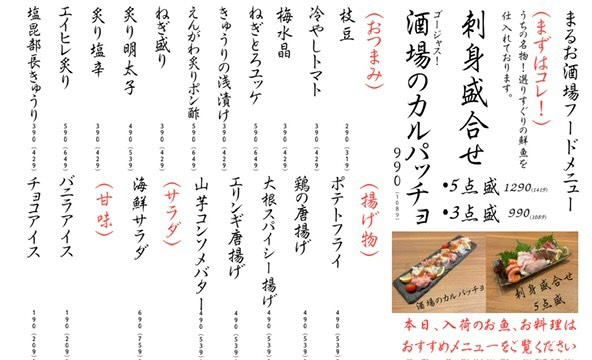 まるお酒場フードメニュー
（まずはコレ！）
うちの名物！選りすぐりの鮮魚を
仕入れております。
刺身盛合せ
•5点盛 1290(1419)
•3点盛 990(1089)
ゴージャス！
酒場のカルパッチョ
990(1089)
酒場のカルパッチョ
刺身盛合せ
5点盛
本日、入荷のお魚、お料理は
おすすめメニューをご覧ください
（おつまみ）
枝豆 290(319)
冷やしトマト 390(429)
梅水晶 390(429)
ねぎとろユッケ 590(649)
きゅうりの浅漬け 390(429)
えんがわ炙りポン酢 590(649)
ねぎ盛り 390(429)
炙り明太子 490(539)
炙り塩辛 390(429)
エイヒレ炙り 590(649)
塩昆部長きゅうり 390(429)
（揚げ物）
ポテトフライ
鶏の唐揚げ
大根スパイシー揚げ
エリンギ唐揚げ
山芋コンソメバター
（サラダ）
海鮮サラダ 690
（甘味）
バニラアイス 190
チョコアイス 190